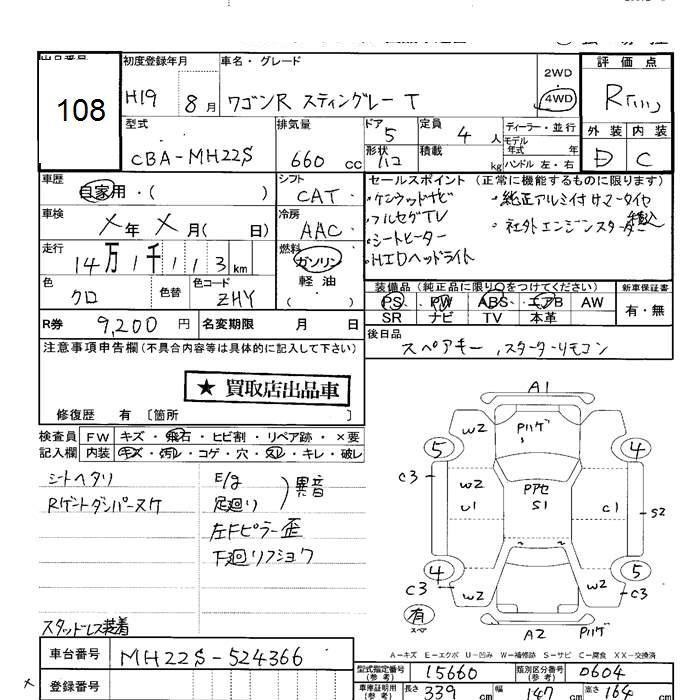 108
初度登録年月
車名・グレード
評価点
H19 8月
ワゴンR スティングレー T
2WD
4WD
R
外装 内装
D C
型式
CBA-MH22S
排気量
660 cc
ドア
5
形状
定員
4 人
積載
kg
ディーラー・並行
モデル年式 年
ハンドル 左・右
車歴
自家用・( )
シフト
CAT
セールスポイント (正常に機能するものに限ります)
・ケンウッドナビ
・フルセグTV
・シートヒーター
・HIDヘッドライト
・純正アルミ付サマータイヤ
積込
・社外エンジンスターター
車検
メ年 メ月( 日)
冷房
AAC
走行
14万1千113km
燃料
ガソリン
軽油
( )
色
クロ
色替
色コード
ZHY
装備品(純正品に限り○をつけてください)
PS PW ABS エアB AW
SR ナビ TV 本革
新車保証書
有・無
R券 9,200円
名変期限 月 日
後日品
スペアキー、スターターリモコン
注意事項申告欄(不具合内容等は具体的に記入して下さい)
★ 買取店出品車
修復歴 有〔箇所 〕
検査員記入欄
FW キズ・飛石・ヒビ割・リペア跡・×要
内装 キズ・汚レ・コゲ・穴・スレ・キレ・破レ
シートヘタリ
Rゲートダンパーヌケ
E/g
足廻り
異音
左Fピラー歪
下廻リフショク
スタッドレス装着
A1
W2
Pハゲ
5
4
C3
W2
U1
Pアセ
S1
C1
S2
4
5
C3
W2
W2
C3
有
スペ
A2
Pハゲ
A-キズ E-エクボ U-凹み W-補修跡 S-サビ C-腐食 XX-交換済
車台番号
MH22S-524366
登録番号
型式指定番号(参考)
15660
類別区分番号(参考)
0604
車庫証明用(参考)
長さ 339 cm
幅 147 cm
高さ 164 cm